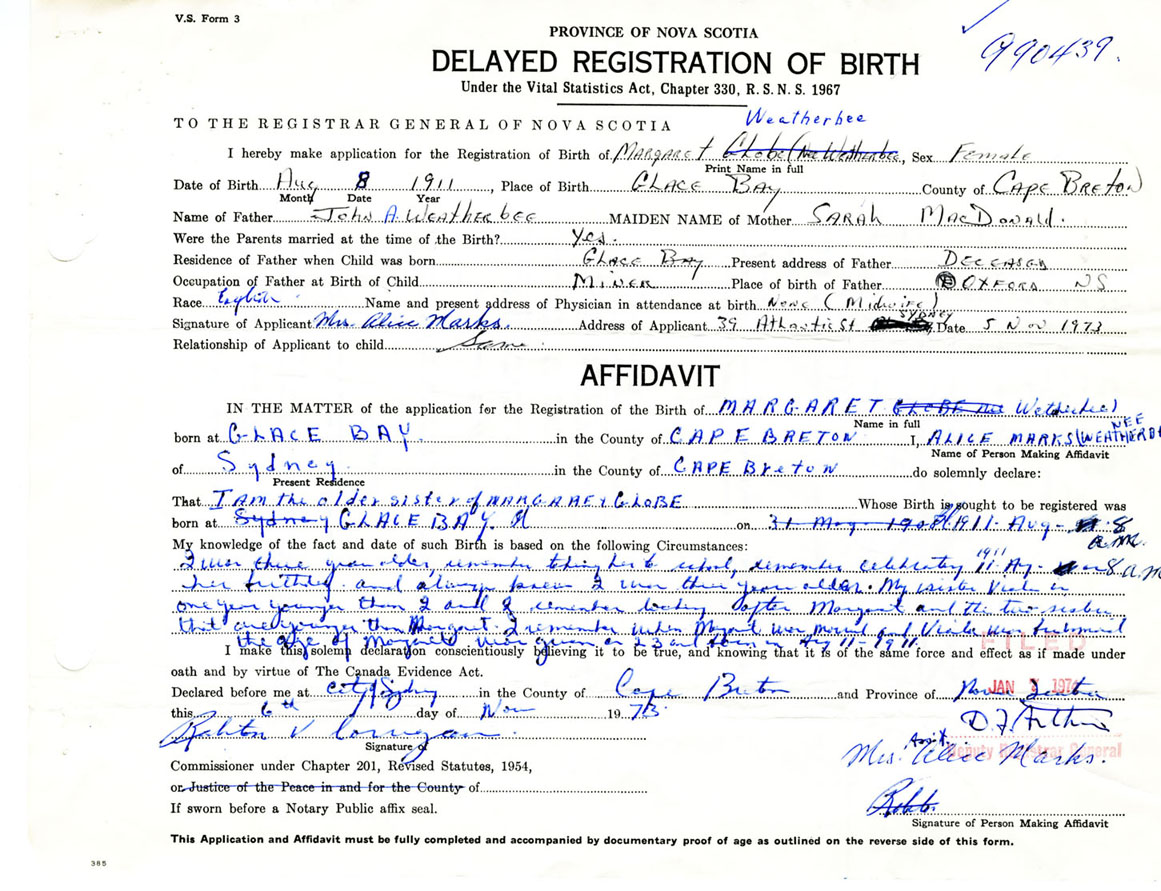 V.S. Form 3
PROVINCE OF NOVA SCOTIA
990439.
DELAYED REGISTRATION OF BIRTH
Under the Vital Statistics Act, Chapter 330, R. S. N. S. 1967
Weatherbee
TO THE REGISTRAR GENERAL OF NOVA SCOTIA
I hereby make application for the Registration of Birth of MARGARET Globe (nee Weatherbee, Sex Female
Print Name in full
Date of Birth Aug 8 1911, Place of Birth GLACE BAY County of CAPE BRETON
Month Date Year
Name of Father JOHN A. WEATHERBEE MAIDEN NAME of Mother SARAH MACDONALD.
Were the Parents married at the time of the Birth? Yes.
Residence of Father when Child was born GLACE BAY Present address of Father DECEASED
Occupation of Father at Birth of Child MINER Place of birth of Father OXFORD NS
Race English Name and present address of Physician in attendance at birth NONE (Midwife)
SYDNEY
Signature of Applicant Mrs. Alice Marks. Address of Applicant 39 Atlantic St Date 5 Nov 1973
Relationship of Applicant to child Same
AFFIDAVIT
IN THE MATTER of the application for the Registration of the Birth of MARGARET GLOBE nee Wetherbee)
Name in full
NEE
born at GLACE BAY. in the County of CAPE BRETON I, ALICE MARKS (WEATHERB
Name of Person Making Affidavit
of Sydney in the County of CAPE Breton do solemnly declare:
Present Residence
That I AM the older sister of MARGARET GLOBE Whose Birth is sought to be registered was
born at Sydney GLACE BAY. on 31 May 1908 1911 - Aug - 8
a.m.
My knowledge of the fact and date of such Birth is based on the following Circumstances:
1911
I was three years older, remember taking her to school, remember celebrating 11 Ag. 8 a.m
her birthday and always knew I was three years older. My sister Viola is
one year younger than I and I remember looking after Margaret and the two sisters
that are younger than Margaret. I remember when Margaret was married and Viola was
the age of Margaret was given as 23 and born in Ag 11 - 1911.
FILED
I make this solemn declaration conscientiously believing it to be true, and knowing that it is of the same force and effect as if made under
oath and by virtue of The Canada Evidence Act.
Declared before me at City of Sydney in the County of Cape Breton and Province of Nova Scotia
JAN 1974
this 6th day of Nov 1973
Signature of
Asst.
Deputy Registrar General
Mrs. Alice Marks.
Commissioner under Chapter 201, Revised Statutes, 1954,
or Justice of the Peace in and for the County of
If sworn before a Notary Public affix seal.
Signature of Person Making Affidavit
This Application and Affidavit must be fully completed and accompanied by documentary proof of age as outlined on the reverse side of this form.
385